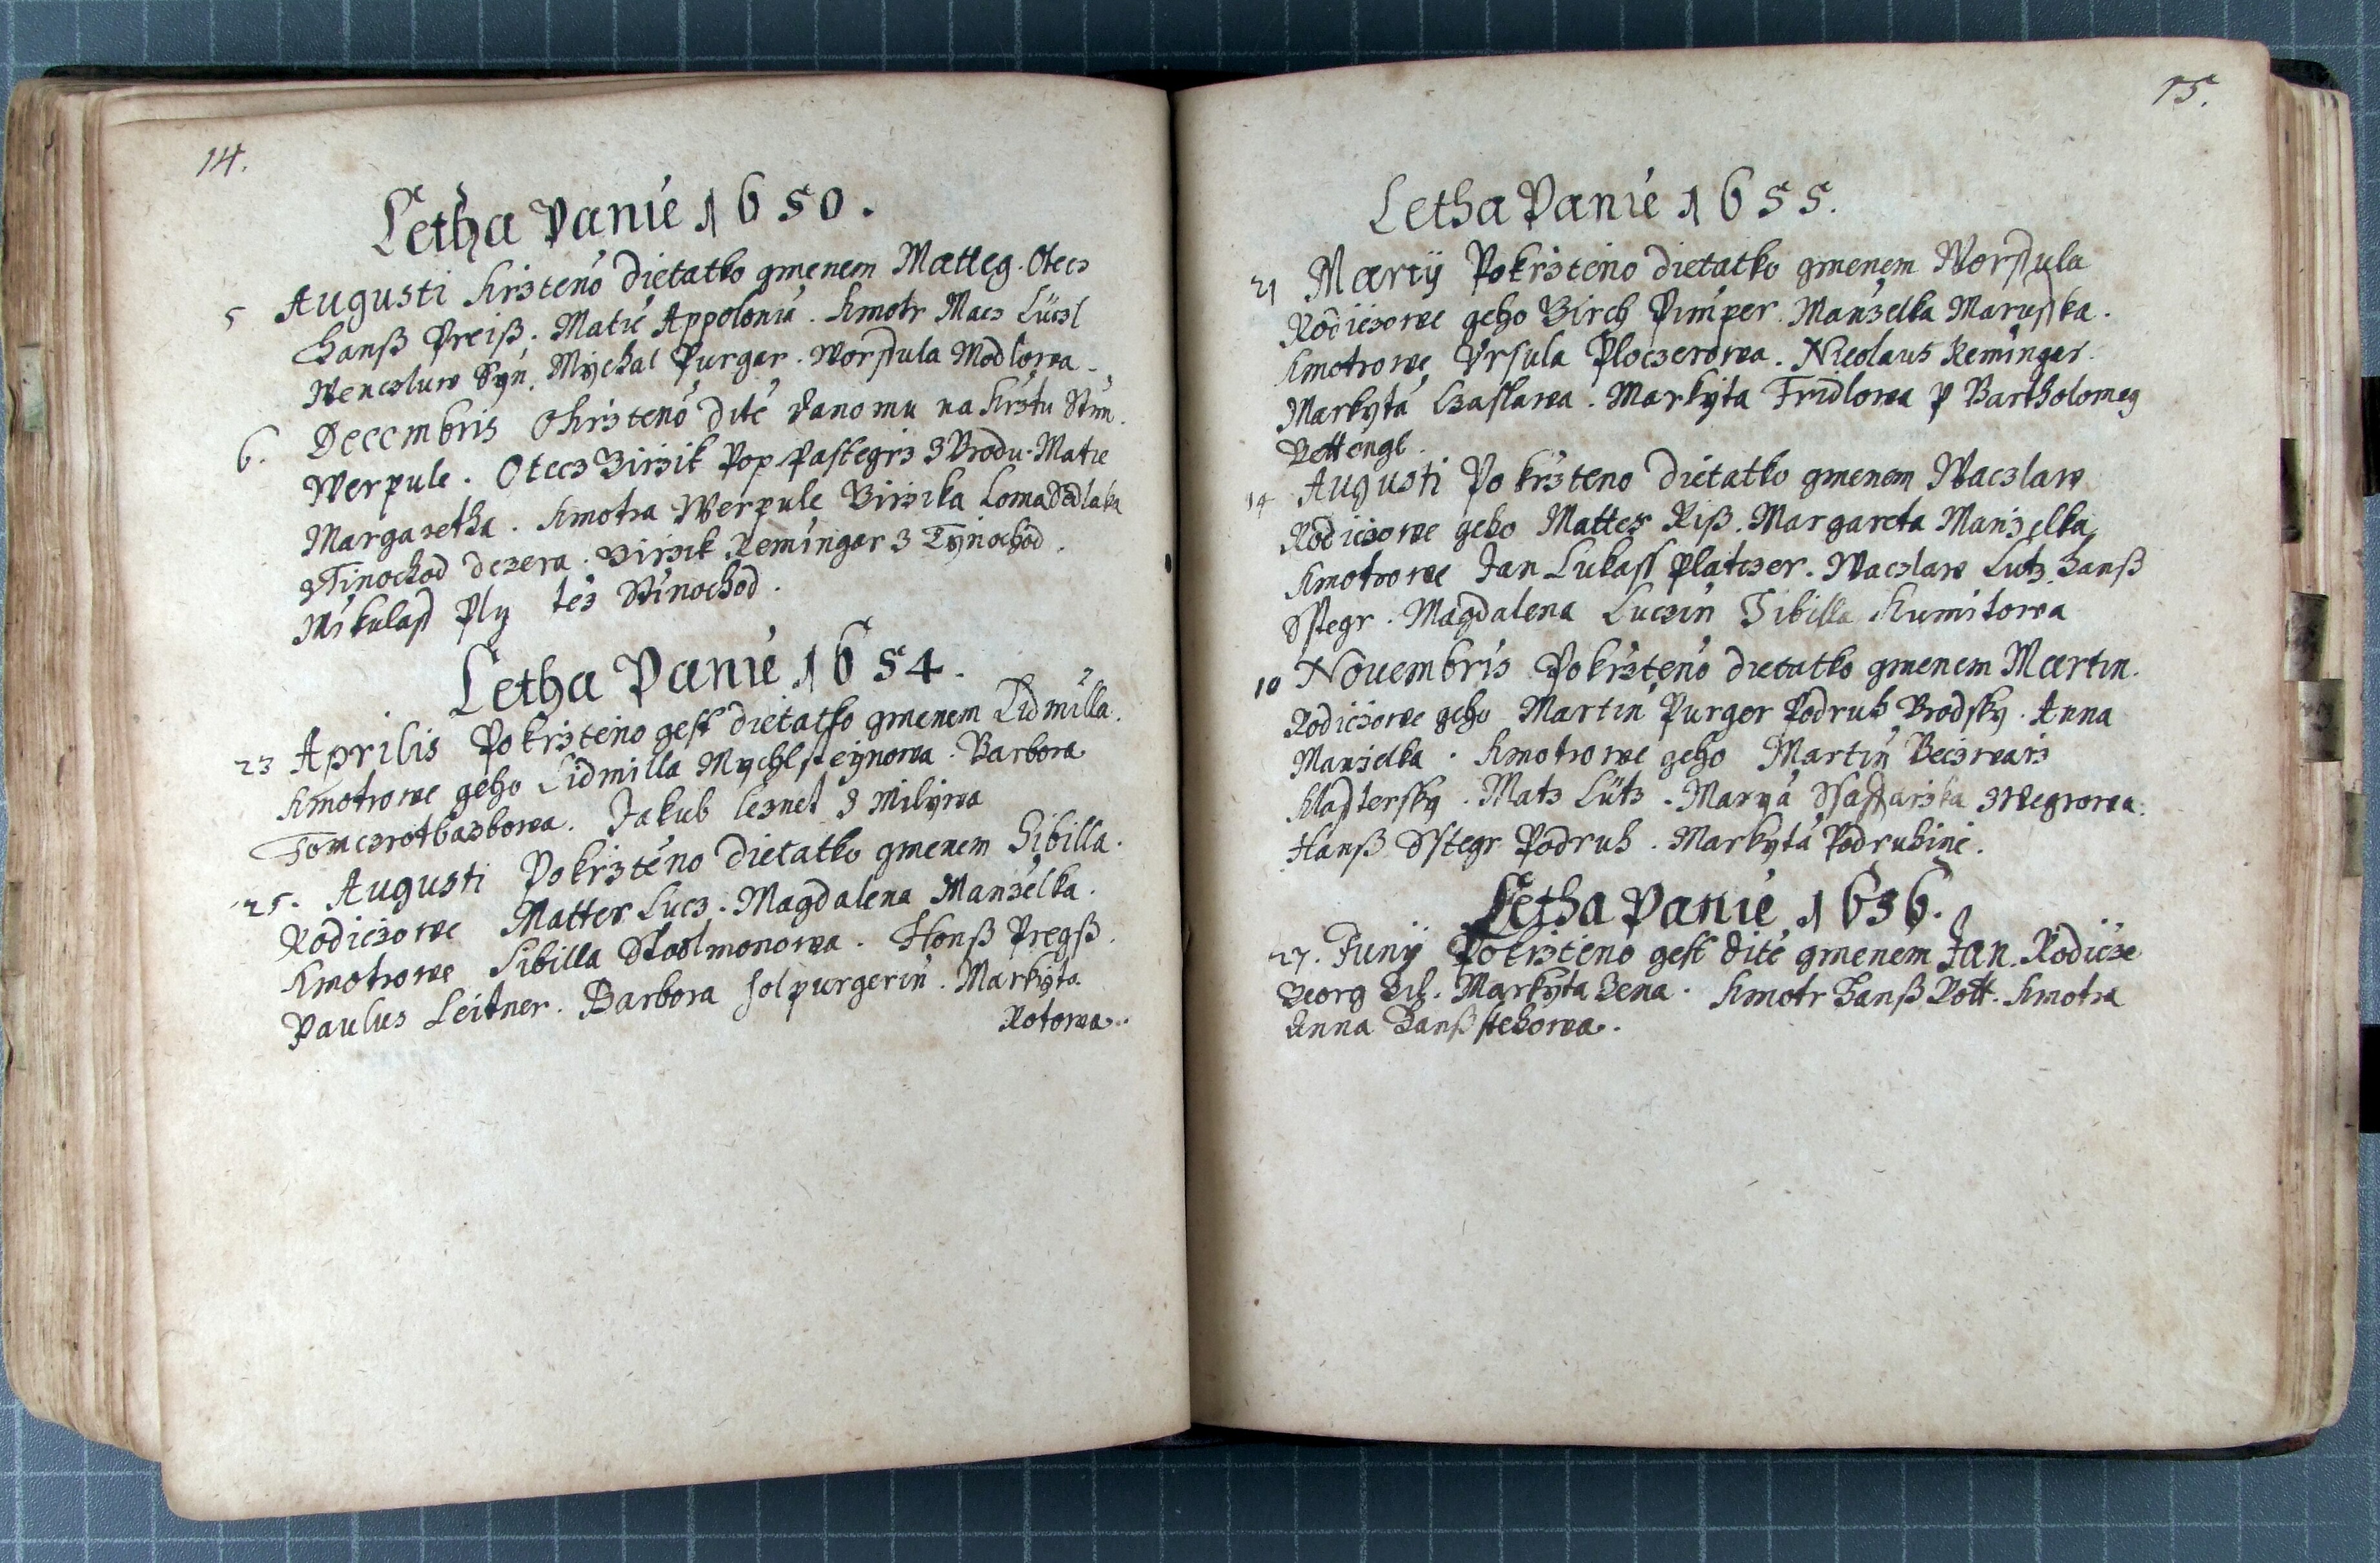 14.
Letha Panie 1650.
5 Augusti Krzteno dietatko gmenem Matteg. Otecz
Hanß Preiß. Matie Appolonia. Kmotr Macz Lüczl
Wenczluw Syn. Mychal Purgar. Worssula Modlowa.
6. Decembris Okrzteno dite dano mu na Krztu Jmn.
Werpule. Otecz Jirzik Pop Pastegrz z Brodu. Matie
Margaretha. Kmotra Werpule Jirzika
z Tinochod dczera. Jirzik Remingar z Tynochod.
Mikulass Ply tez Stinochod.
Letha Panie 1654.
23 Aprilis Pokrzteno gest dietatko gmenem Lidmilla.
Kmotrowe geho Lidmilla Mychlsteynowa. Barbora
Jakub z Milywa
25. Augusti Pokrzteno dietatko gmenem Sibilla.
Rodiczowe Matter Lucz. Magdalena Manzelka.
Kmotrowe Sibilla Honß Pregß.
Paulus Leitner. Barbora holpurgerin. Markyta
Rotowa.
15.
Letha Panie 1655.
21 Martij Pokrzteno dietatko gmenem Worssula
Rodiczowe geho Jirch Pimper. Manzelka Marusska.
Kmotrowe Ursula Ploczerowa. Nicolaus Remingar.
Markyta Czaslawa. Markyta Fridlowa P Bartholomeg
Pettengl.
14 Augusti Pokrzteno dietatko gmenem Waczlaw
Rodiczowe geho Mattes Riß. Margareta Manzelka
Kmotrowe Jan Lukass Platczer. Waczlaw Lutz. Hanß
Sstegr. Magdalena Luczin Sibilla Kumitowa
10 Nouembris Pokrzteno dietatko gmenem Martin.
Rodiczowe geho Martin Purger Podruh Brodsky. Anna
Manzelka. Kmotrowe geho Martin Beczwarz
Klasstersky. Matz Lütz. Marya Ssaffarzka
Hanß Sstegr Podruh. Markyta Podruhine.
Letha Panie 1656.
27. Junij Pokrzteno gest dite gmenem Jan. Rodicze
Georg Markyta Zena. Kmotr Hanß Pott. Kmotra
Anna Hanß